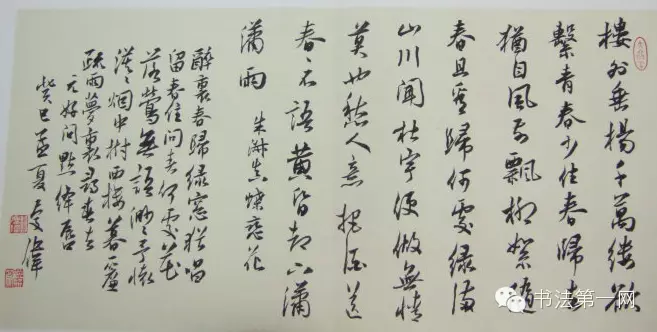 樓外垂楊千萬縷欲
繫青春少住春歸去
猶自風前飄柳絮隨
春且看歸何處綠滿
山川聞杜宇便做無情
莫也愁人意把酒送
春〻不語黃昏却下瀟
瀟雨 朱淑真蝶戀花
醉裏春歸綠窗猶唱
留春住問春何處花
落鶯無語渺〻予懷
漠〻烟中樹西樓暮一簾
疏雨夢裏尋春去
元好問點絳唇
癸巳孟夏
书法第一网